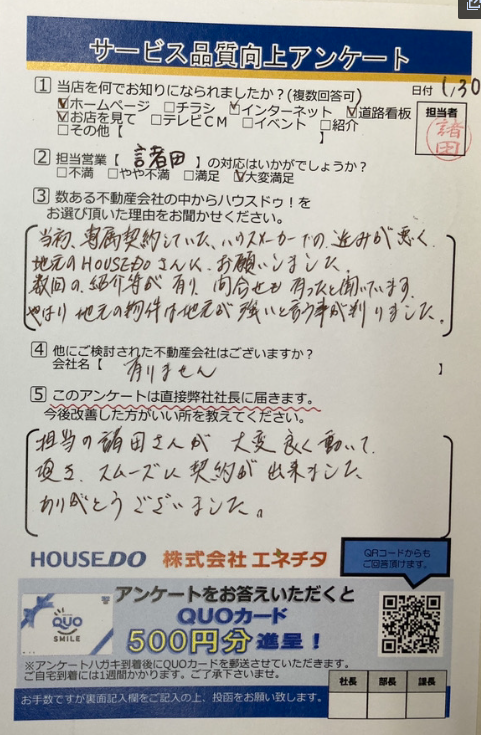 サービス品質向上アンケート
1 当店を何でお知りになられましたか?(複数回答可)
日付 1/30
☑ホームページ □チラシ ☑インターネット ☑道路看板
☑お店を見て □テレビCM □イベント □紹介
□その他【 】
担当者
諸田
2 担当営業【 諸田 】の対応はいかがでしょうか?
□不満 □やや不満 □満足 ☑大変満足
3 数ある不動産会社の中からハウスドゥ!を
お選び頂いた理由をお聞かせください。
当初、専属契約していた、ハウスメーカーでの進みが悪く
地元のHOUSEDOさんに、お願いしました。
数回の、紹介等が有り、問合せも有ったと聞いています。
やはり地元の物件は地元が強いと言う事が判りました。
4 他にご検討された不動産会社はございますか?
会社名【 有りません 】
5 このアンケートは直接弊社社長に届きます。
今後改善した方がいい所を教えてください。
担当の諸田さんが、大変良く動いて、
頂き、スムーズに契約が出来ました
ありがとうございました。
HOUSEDO 株式会社 エネチタ
QRコードからも
ご回答頂けます。
アンケートをお答えいただくと
QUOカード
500円分進呈!
QUO
SMILE
※アンケートハガキ到着後にQUOカードを郵送させていただきます。
ご自宅到着には1週間かかります。ご了承下さいませ。
社長 部長 課長
お手数ですが裏面記入欄をご記入の上、投函をお願い致します。